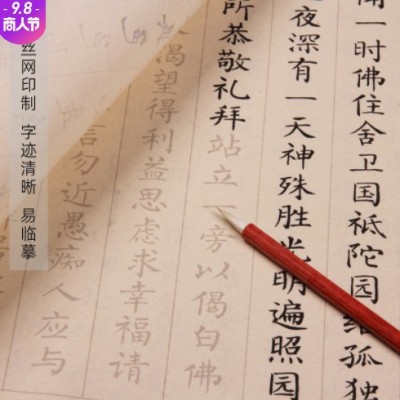 9.8
商人节
丝网印制 字迹清晰 易临摹
闻一时佛住舍卫国祇陀园给孤独
夜深有一天神殊胜光明遍照园
所恭敬礼拜站立一旁以偈白佛
渴望得利益思虑求幸福请
言勿近愚痴人应与